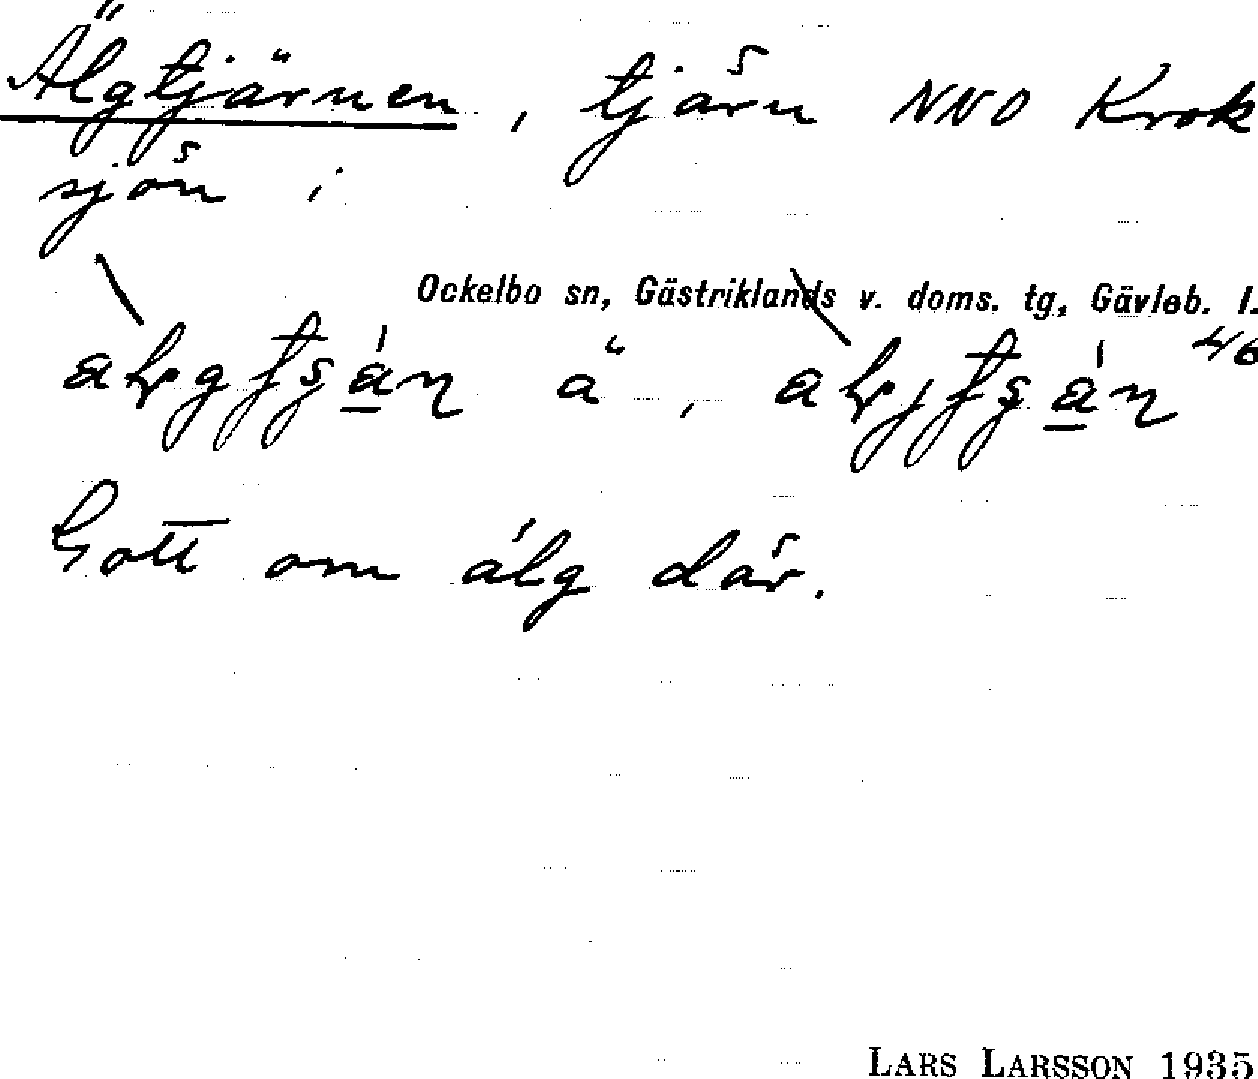 Älgtjärnen, tjärn NNO Krok
sjön i
Ockelbo sn, Gästriklands v. doms. tg, Gävleb. l.
ä
4/6
Gott om älg där.
LARS LARSSON 1935